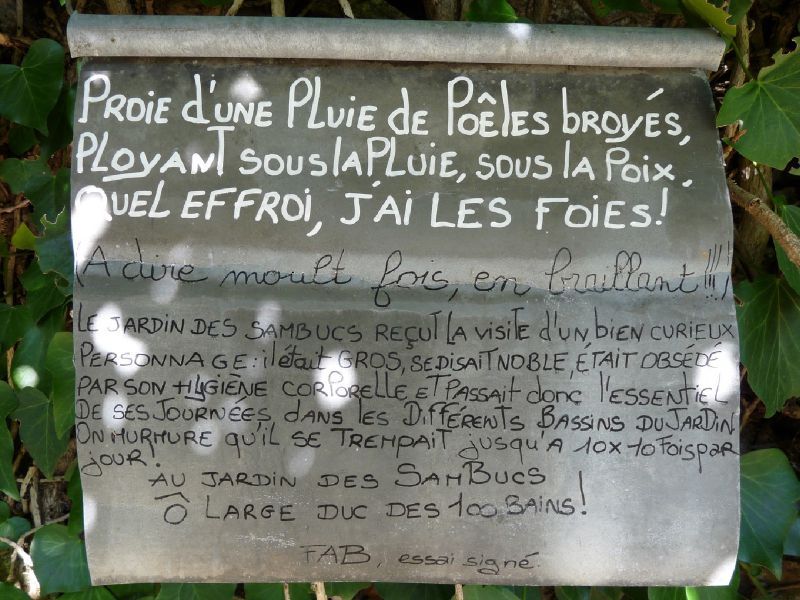 PROIE d'UNE PLUIE de POÊLES bROYÉS,
PLOYANT SOUS LA PLUIE, SOUS LA POIX.
QUEL EFFROI, J'AI LES FOIES!
(A dire moult fois, en braillant!!!)
LE JARDIN DES SAMBUCS REÇUT LA VISITE d'UN BIEN CURIEUX
PERSONNAGE: il était GROS, SE DISAIT NOBLE, ÉTAIT OBSÉDÉ
PAR SON HYGIÈNE CORPORELLE ET PASSAIT donc l'ESSENTIEL
DE SES JOURNÉES, dANS LES DIFFÉRENTS BASSINS DU JARDIN
ON MURMURE qu'il SE TREMPAIT jusqu'A 10x10 FOIS PAR
jour.
AU JARDIN DES SAMBUCS
Ô LARGE DUC DES 100 BAINS!
FAB, essai signé.